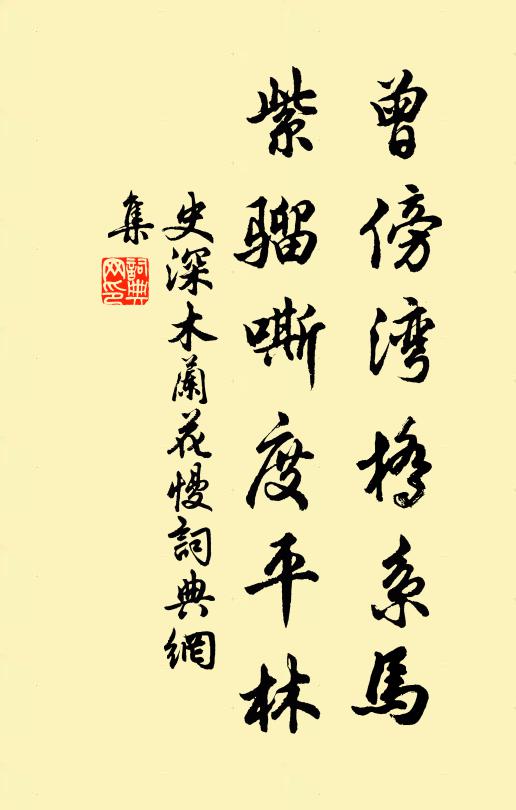 曾傍湾橋系馬
紫骝嘶度平林
史深木蘭花慢詞典網
集
詞典
网印